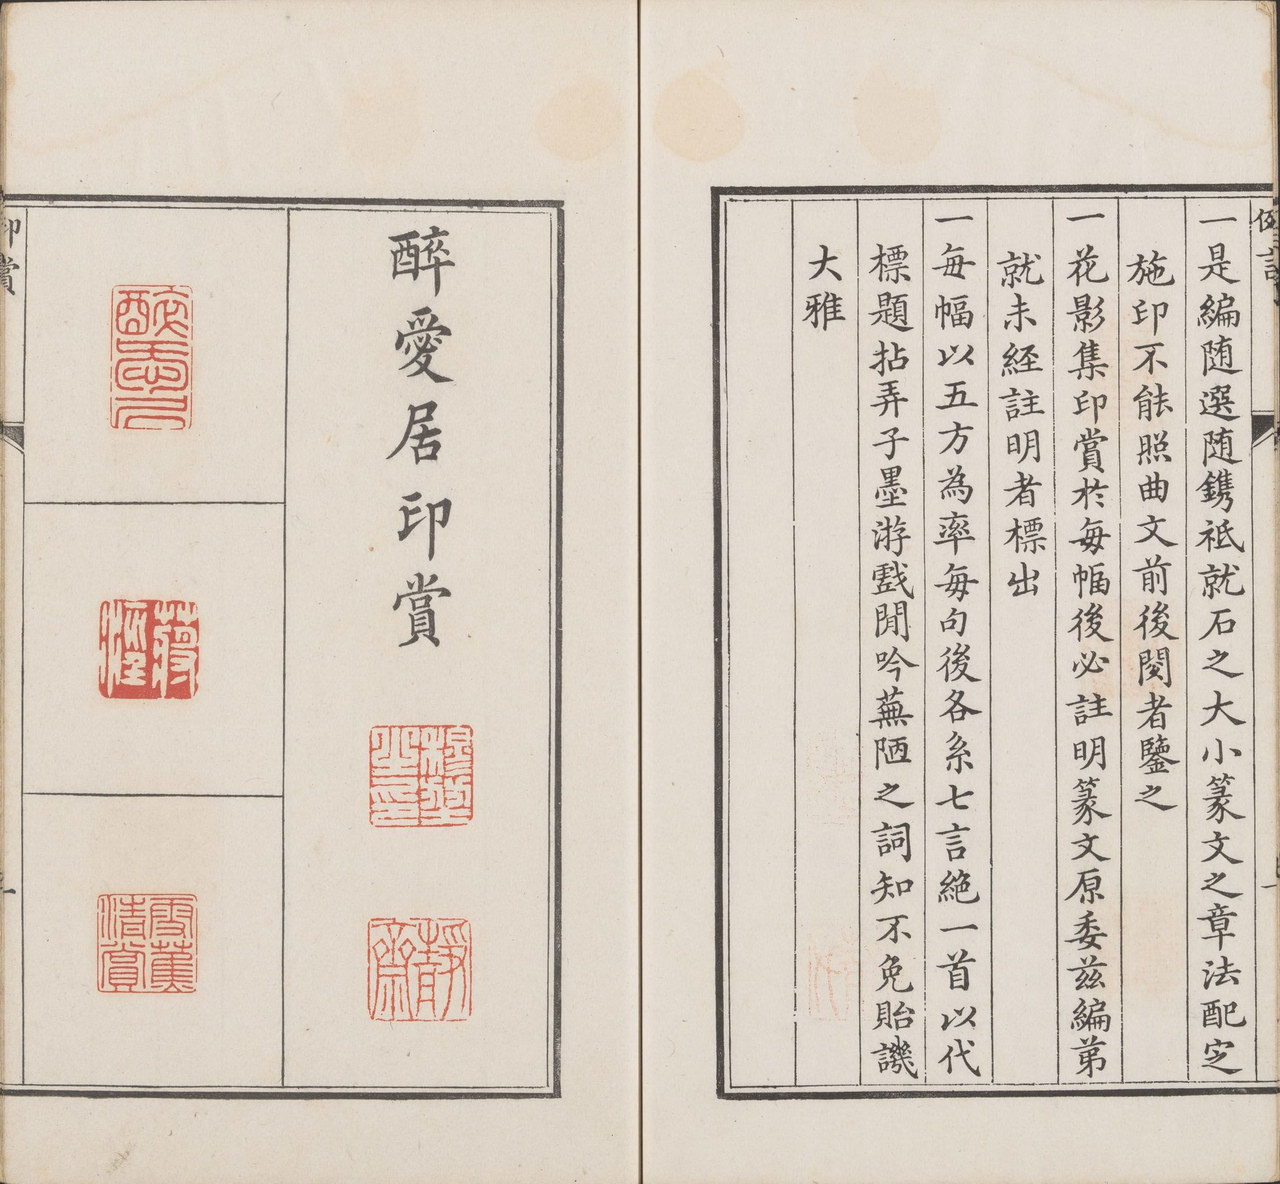 例言
一是編随選随鐫祗就石之大小篆文之章法配定
施印不能照曲文前後閱者鑒之
一花影集印賞於每幅後必註明篆文原委茲編第
就未経註明者標出
一每幅以五方為率每句後各系七言絶一首以代
標題拈弄子墨游戲閒吟蕪陋之詞知不免貽譏
大雅
醉愛居印賞
靜齋
蔣
雪蕉清賞
印賞
一